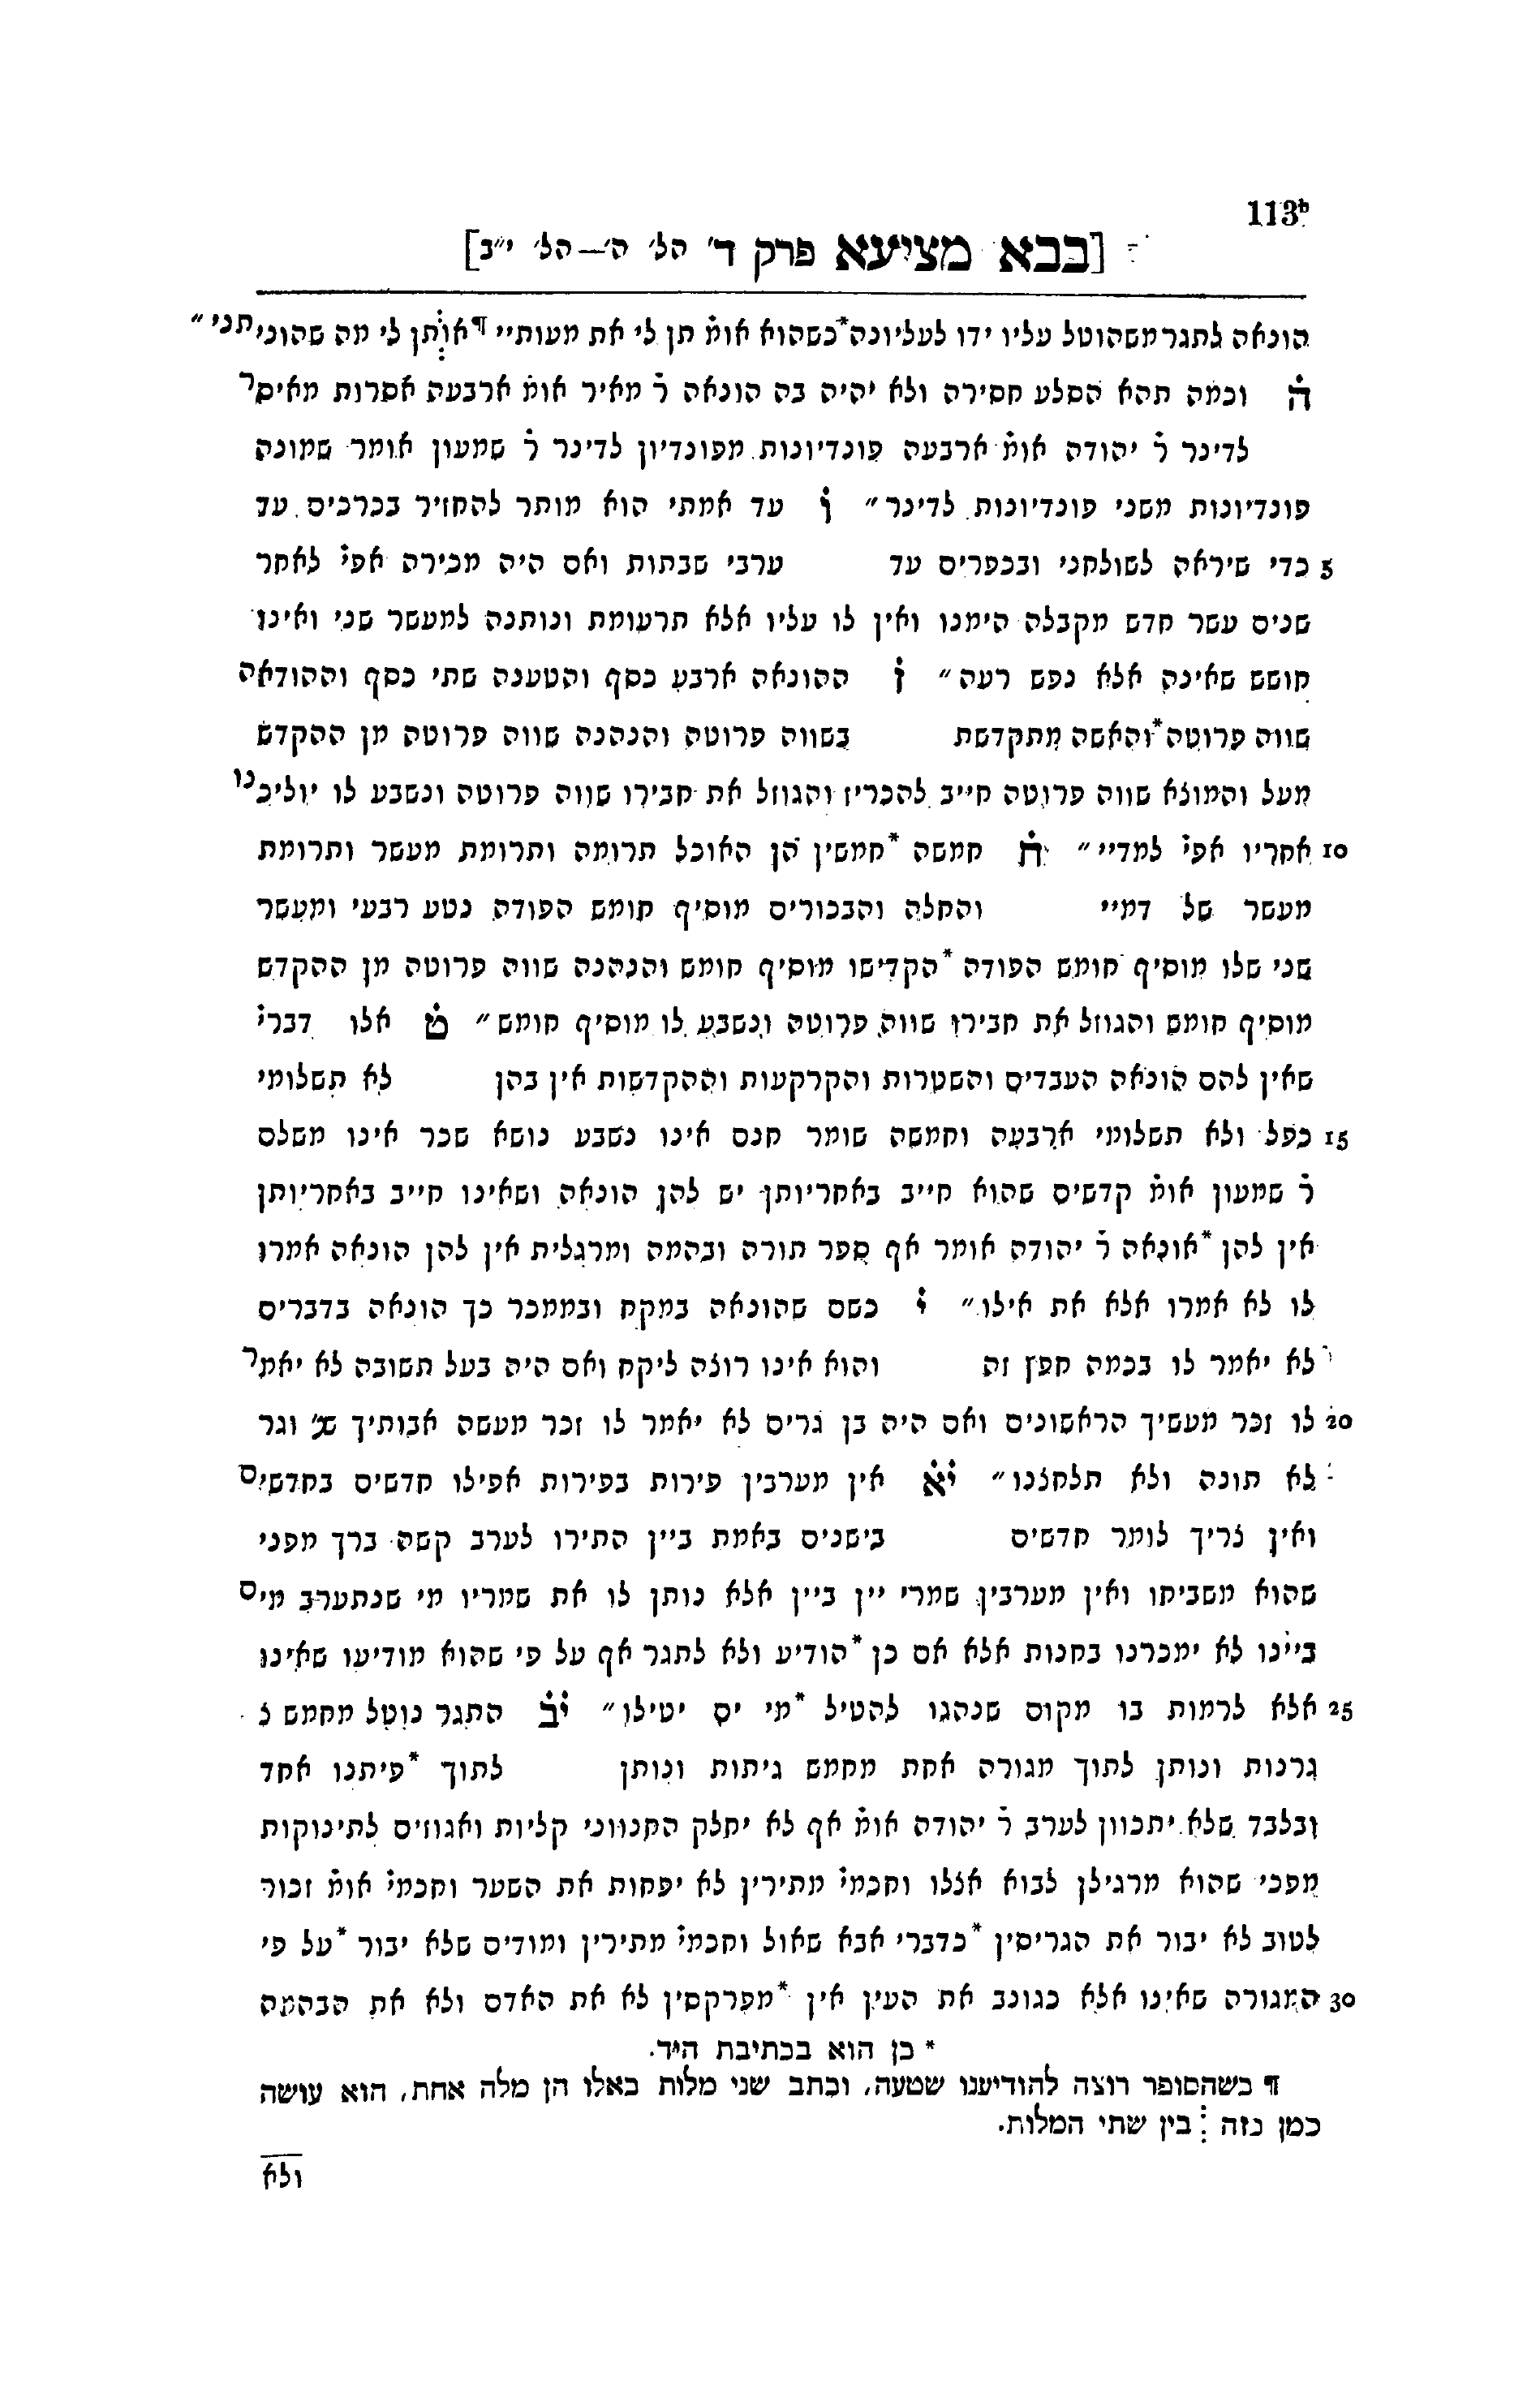 113b
[בבא מציעא פרק ד׳ הל׳ ה׳—הל׳ י״ב]
הונאה לתגר משהוטל עליו ידו לעליונה*כשהוא אומ׳ תן לי את מעותיי ¶או⁝תן לי מה שהוניתני״
ה וכמה תהא הסלע חסירה ולא יהיה בה הונאה ר׳ מאיר אומ׳ ארבעה אסרות מאיסר
לדינר ר׳ יהודה אומ׳ ארבעה פונדיונות מפונדיון לדינר ר׳ שמעון אומר שמונה
פונדיונות משני פונדיונות לדינר״ ו עד אמתי הוא מותר להחזיר בכרכים עד
5 כדי שיראה לשולחני ובכפרים עד ערבי שבתות ואם היה מכירה אפי׳ לאחר
שנים עשר חדש מקבלה הימנו ואין לו עליו אלא תרעומת ונותנה למעשר שני ואינו
חושש שאינה אלא נפש רעה״ ז ההונאה ארבע כסף והטענה שתי כסף וההודאה
שווה פרוטה*והאשה מתקדשת בשווה פרוטה והנהנה שווה פרוטה מן ההקדש
מעל והמוצא שווה פרוטה חייב להכריז והגוזל את חבירו שווה פרוטה ונשבע לו יוליכנו
10 אחריו אפי׳ למדיי״ ח חמשה *חמשין הן האוכל תרומה ותרומת מעשר ותרומת
מעשר של דמיי והחלה והבכורים מוסיף חומש הפודה נטע רבעי ומעשר
שני שלו מוסיף חומש הפודה *הקדישו מוסיף חומש והנהנה שווה פרוטה מן ההקדש
מוסיף חומש והגוזל את חבירו שווה פרוטה ונשבע לו מוסיף חומש״ ט אלו דברי׳
שאין להם הונאה העבדים והשטרות והקרקעות וההקדשות אין בהן לא תשלומי
15 כפל ולא תשלומי ארבעה וחמשה שומר חנם אינו נשבע נושא שכר אינו משלם
ר׳ שמעון אומ׳ קדשים שהוא חייב באחריותן יש להן הונאה ושאינו חייב באחריותן
אין להן *אונאה ר׳ יהודה אומר אף ספר תורה ובהמה ומרגלית אין להן הונאה אמרו
לו לא אמרו אלא את אילו״ י כשם שהונאה במקח ובממכר כך הונאה בדברים
לא יאמר לו בכמה חפץ זה והוא אינו רוצה ליקח ואם היה בעל תשובה לא יאמר
20 לו זכר מעשיך הראשונים ואם היה בן גרים לא יאמר לו זכר מעשה אבותיך שנ׳ וגר
לא תונה ולא תלחצנו״ יא אין מערבין פירות בפירות אפילו חדשים בחדשים
ואין צריך לומר חדשים בישנים באמת ביין התירו לערב קשה ברך מפני
שהוא משביחו ואין מערבין שמרי יין ביין אלא נותן לו את שמריו מי שנתערב מים
ביינו לא ימכרנו בחנות אלא אם כן *הודיע ולא לתגר אף על פי שהוא מודיעו שאינו
25 אלא לרמות בו מקום שנהגו להטיל *מי ים יטילו״ יב התגר נוטל מחמש ג
גרנות ונותן לתוך מגורה אחת מחמש גיתות ונותן לתוך *פיתנו אחד
ובלבד שלא יתכוון לערב ר׳ יהודה אומ׳ אף לא יחלק החנווני קליות ואגוזים לתינוקות
מפני שהוא מרגילן לבוא אצלו וחכמי׳ מתירין לא יפחות את השער וחכמי׳ אומ׳ זכור
לטוב לא יבור את הגריסין *כדברי אבא שאול וחכמי׳ מתירין ומודים שלא יבור *על פי
30 המגורה שאינו אלא כגונב את העין אין *מפרקסין לא את האדם ולא את הבהמה
* כן הוא בכתיבת היד.
¶ כשהסופר רוצה להודיענו שטעה, וכתב שני מלות כאלו הן מלה אחת, הוא עושה
כמן כזה ⁝ בין שתי המלות.
ולא